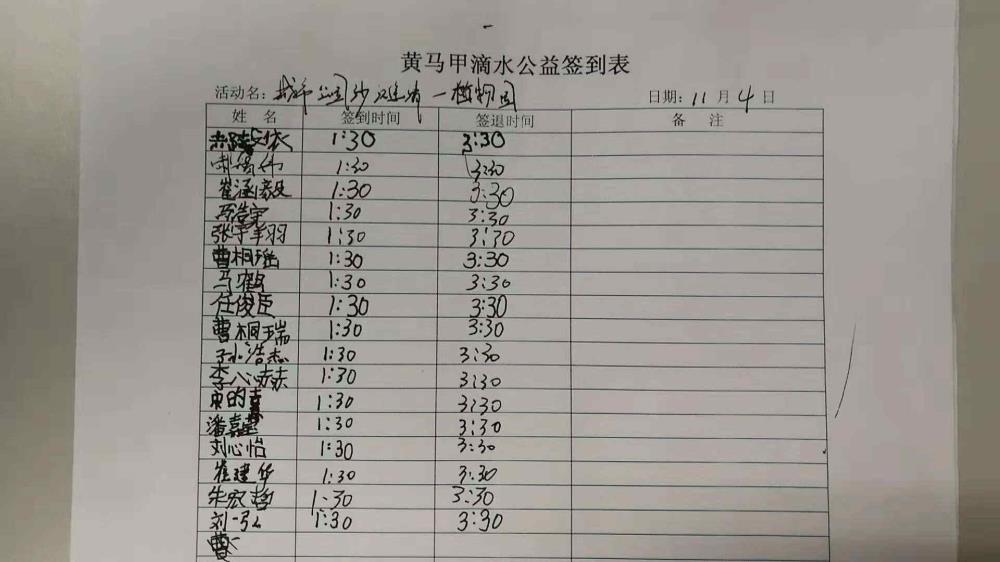 黄马甲滴水公益签到表
活动名: 一植物园 日期: 11 月 4 日
姓 名 签到时间 签退时间 备 注
1:30 3:30
1:30 3:30
崔涵毅 1:30 3:30
1:30 3:30
张宇羊羽 1:30 3:30
曹桐瑶 1:30 3:30
马鹤 1:30 3:30
任俊臣 1:30 3:30
曹桐瑞 1:30 3:30
孙浩杰 1:30 3:30
李心赫 1:30 3:30
1:30 3:30
潘嘉 1:30 3:30
刘心怡 1:30 3:30
崔建华 1:30 3:30
朱宏哲 1:30 3:30
刘一弘 1:30 3:30
曹